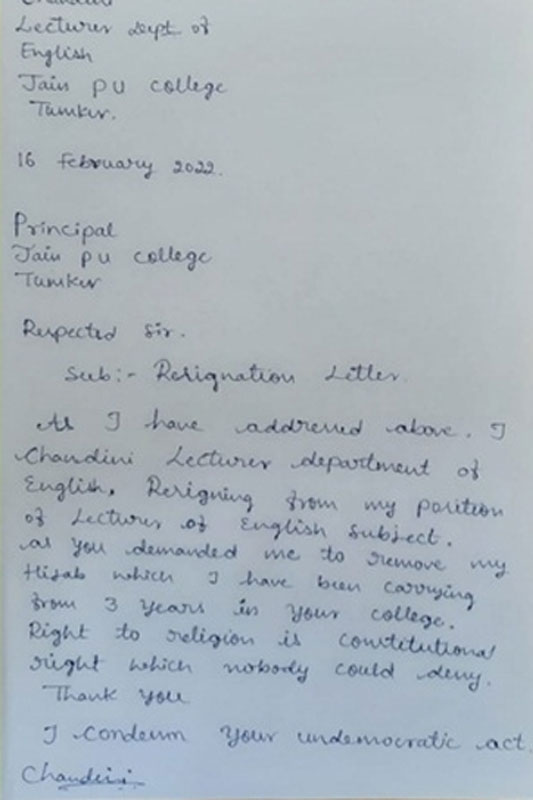 Chandini
Lecturer Dept of
English
Jain PU college
Tumkur.
16 February 2022.
Principal
Jain PU college
Tumkur
Respected Sir.
Sub:- Resignation Letter.
As I have addressed above. I
Chandini Lecturer department of
English, Resigning from my position
of Lecturer of English Subject.
as you demanded me to remove my
Hijab which I have been carrying
from 3 years in your college.
Right to religion is constitutional
right which nobody could deny.
Thank you
I condemn your undemocratic act.
Chandini